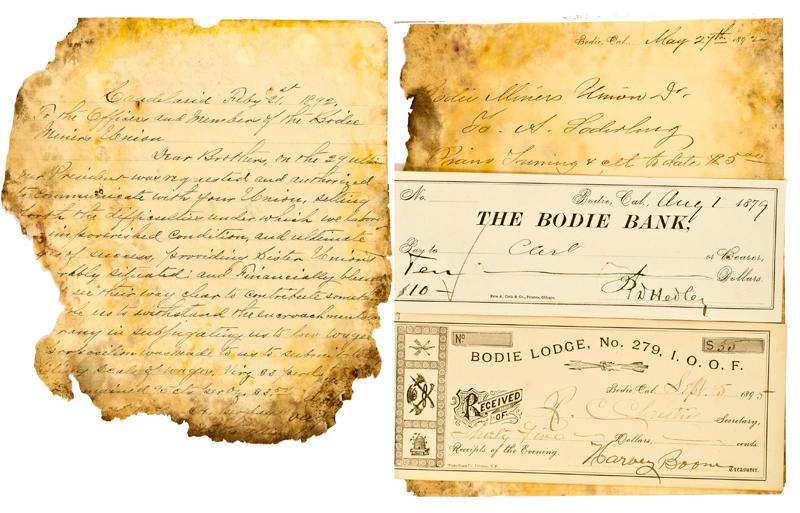 Candelaria Feby 21st 1892.
To the Officers and Members of the Bodie
Miners Union
Dear Brothers, on the 29
Our President was requested and authorized
to communicate with your Union, setting
forth the difficulties under which we labor
impoverished condition, and ultimate
of success, providing Sister Unions
situated and Financially
their way clear to contribute
us to withstand the encroachments
in subjugating us to low wages
proposition was made to us to submit to
scale of wages, Viz
Bodie, Cal. May 27th 1892
Bodie Miners Union Dr.
To A. Soderling
Piano Tuning & to date $5.00
No. Bodie, Cal. Aug 1 1879
THE BODIE BANK,
Pay to Cash or Bearer,
Ten Dollars.
$10- R D Hedley
No
$35
BODIE LODGE, No. 279, I. O. O. F.
Bodie Cal. Sept. 5 1895
RECEIVED
OF R. C. Secretary,
Thirty Five Dollars, cents.
Receipts of the Evening. Harvey Boone Treasurer.